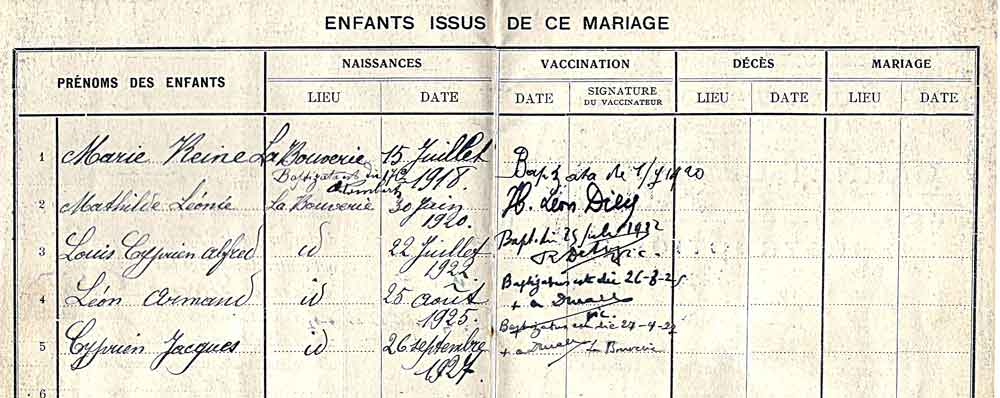 ENFANTS ISSUS DE CE MARIAGE
PRÉNOMS DES ENFANTS
NAISSANCES
VACCINATION
DÉCÈS
MARIAGE
LIEU
DATE
DATE
SIGNATURE
DU VACCINATEUR
LIEU
DATE
LIEU
DATE
1 Marie Reine La Bouverie 15 Juillet 1918.
Baptizata est die
2 Mathilde Léonie La Bouverie 30 Juin 1920.
Baptizata die
H. Léon Dieu
3 Louis Cyprien Alfred id 22 Juillet 1922
Bapt. die 25
4 Léon Armand id 25 août 1925.
Baptizatus est die 26-8-25
+ a
vic.
5 Cyprien Jacques id 26 septembre 1927.
Baptizatus est die 27-9-27
+ a La Bouverie
6